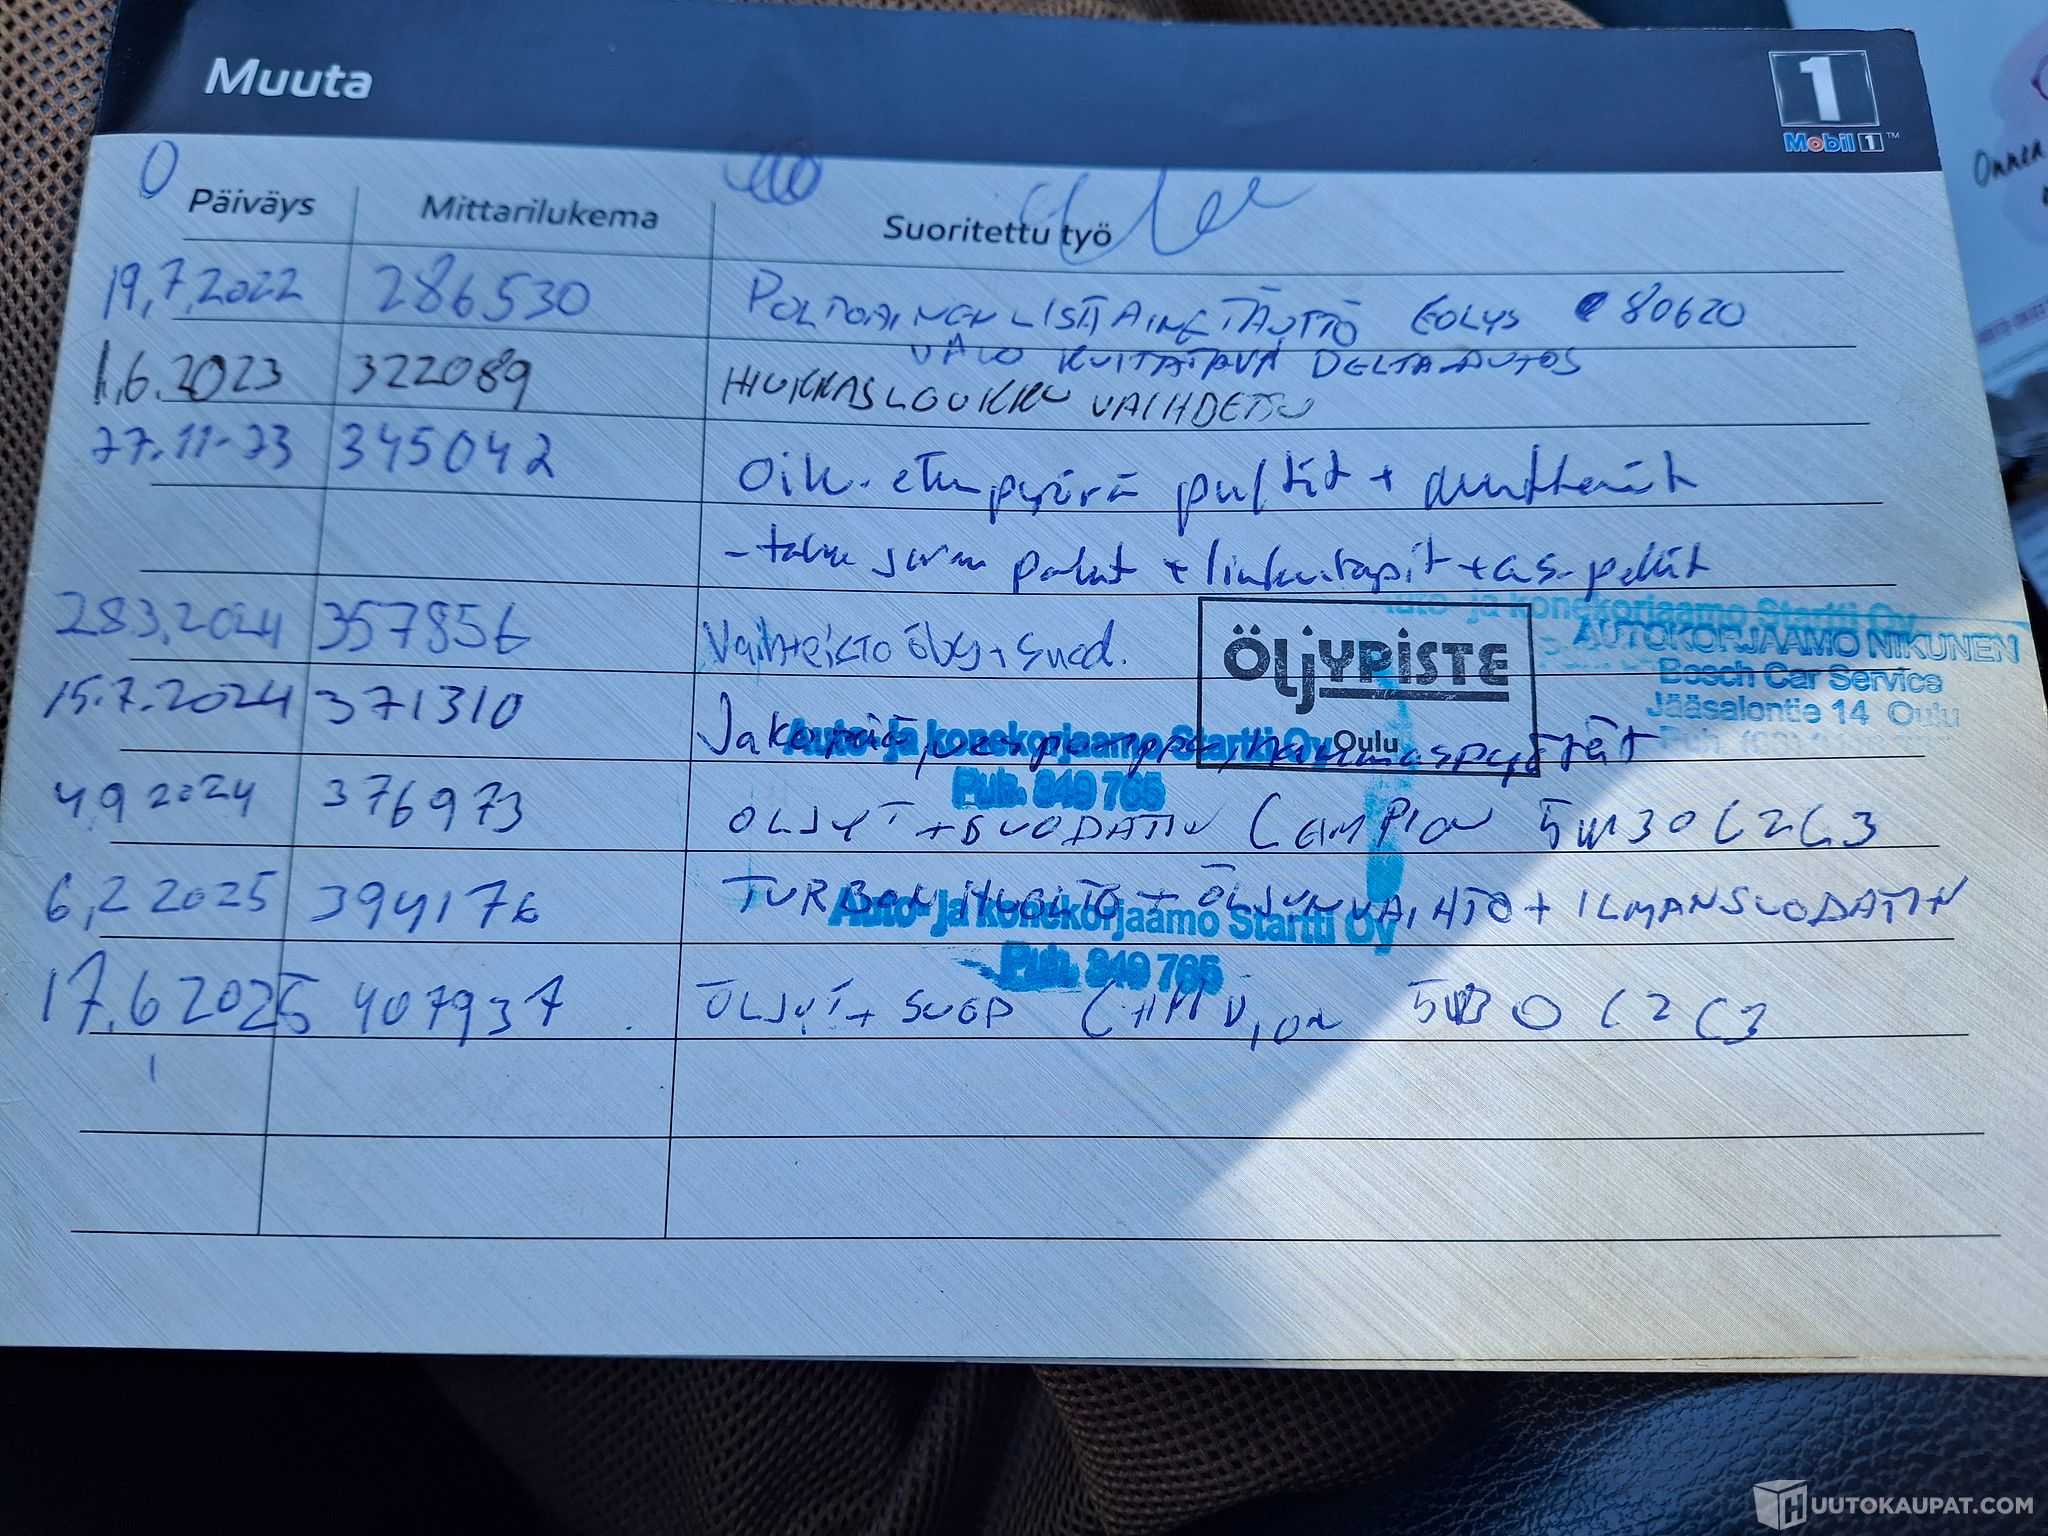 Muuta
1
Mobil 1™
Onnea
Päiväys Mittarilukema Suoritettu työ
19,7,2022 286530 POLTOAINEN LISÄAINETÄYTTÖ EOLYS 80620
VALO KUITATAVA DELTA-AUTOS
1.6.2023 322089 HIUKKASLOUKKU VAIHDETTU
27.11-23 345042 Oik. etupyörä pultit + mutterit
- taka jarru palat + liukutapit + as-pellit
Auto- ja konekorjaamo Startti Oy
28.3.2024 357856 Vaihteisto öljy + suod.
ÖLJYPISTE
Oulu
AUTOKORJAAMO NIKUNEN
Bosch Car Service
Jääsalontie 14 Oulu
15.7.2024 371310 Jakopää, vesipumppu, hammaspyörät
Auto- ja konekorjaamo Startti Oy
Puh. 349 765
4,9 2024 376973 ÖLJYT + SUODATIN CAMPION 5W30 C2C3
6,2 2025 394176 TURBON HUOLTO + ÖLJYNVAIHTO + ILMANSUODATIN
Auto- ja konekorjaamo Startti Oy
Puh. 349 765
17.6 2025 407937 ÖLJYT + SUOD CHAMPION 5W30 C2 C3
HUUTOKAUPAT.COM